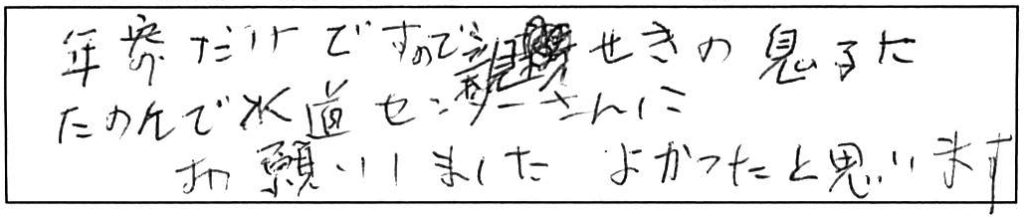 年寄だけですので親せきの息子に
たのんで水道センターさんに
お願いしました よかったと思います